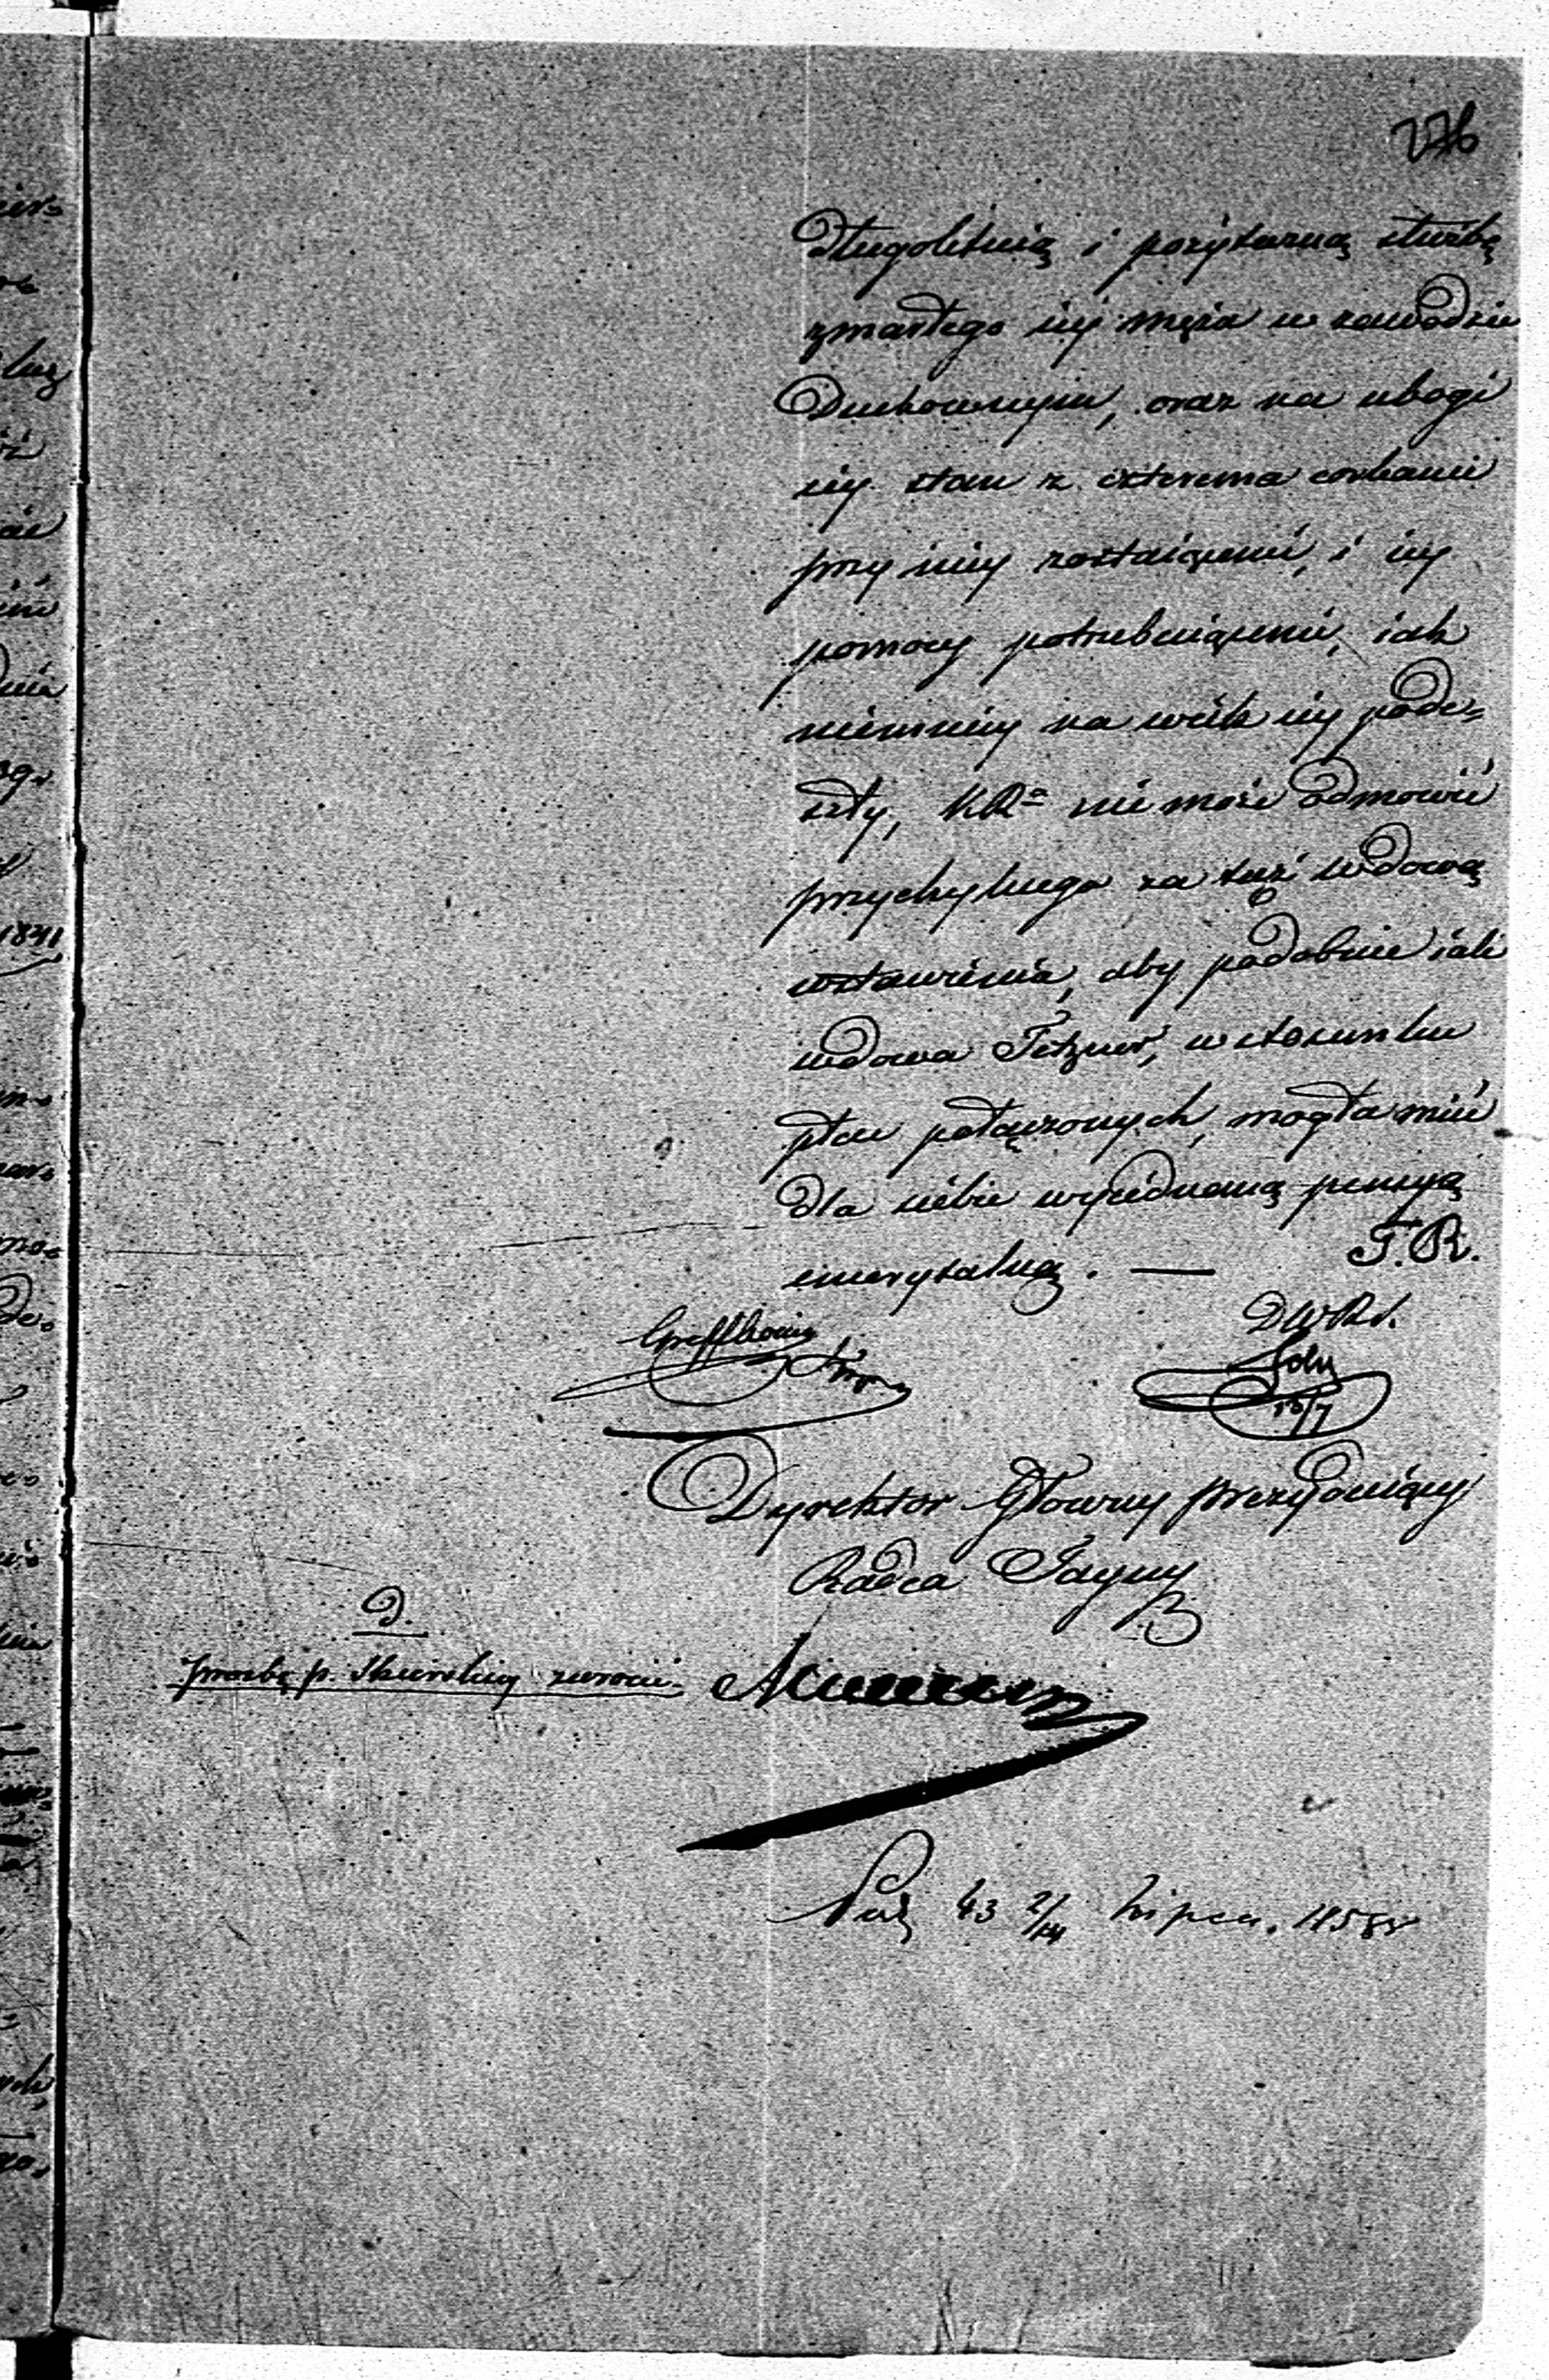 276
długoletnią i pożyteczną służbę
zmarłego iéy męża w zawodzie
Duchownym, oraz na ubogi
iéy stan z czterema corkami
przy niéy zostaiącemi, i iéy
pomocy potrzebuiącemi, iak
niemniéy na wiek iéy pode-
szły, KRa nie może odmowić
przychylnego za tąż wdową
wstawienia, aby podobnie iak
wdowa Tetzner, w stosunku
płac połączonych, mogła mieć
dla siebie wyiednaną pensyą
emerytalną. —
T. R.
DWRS.
15/7
Dyrektor Główny prezyduiący
Radca Tayny
D.
prozbę p. Skierskiey zwrocić.
43 2/14 Lipca.